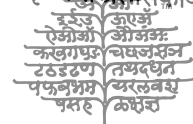 इईउ ऊएऍ
ऐओऑ औअंअः
कखगघङ चछजझञ
टठडढण तथदधन
पफबभम यरलवश
षसह ळक्षज्ञ